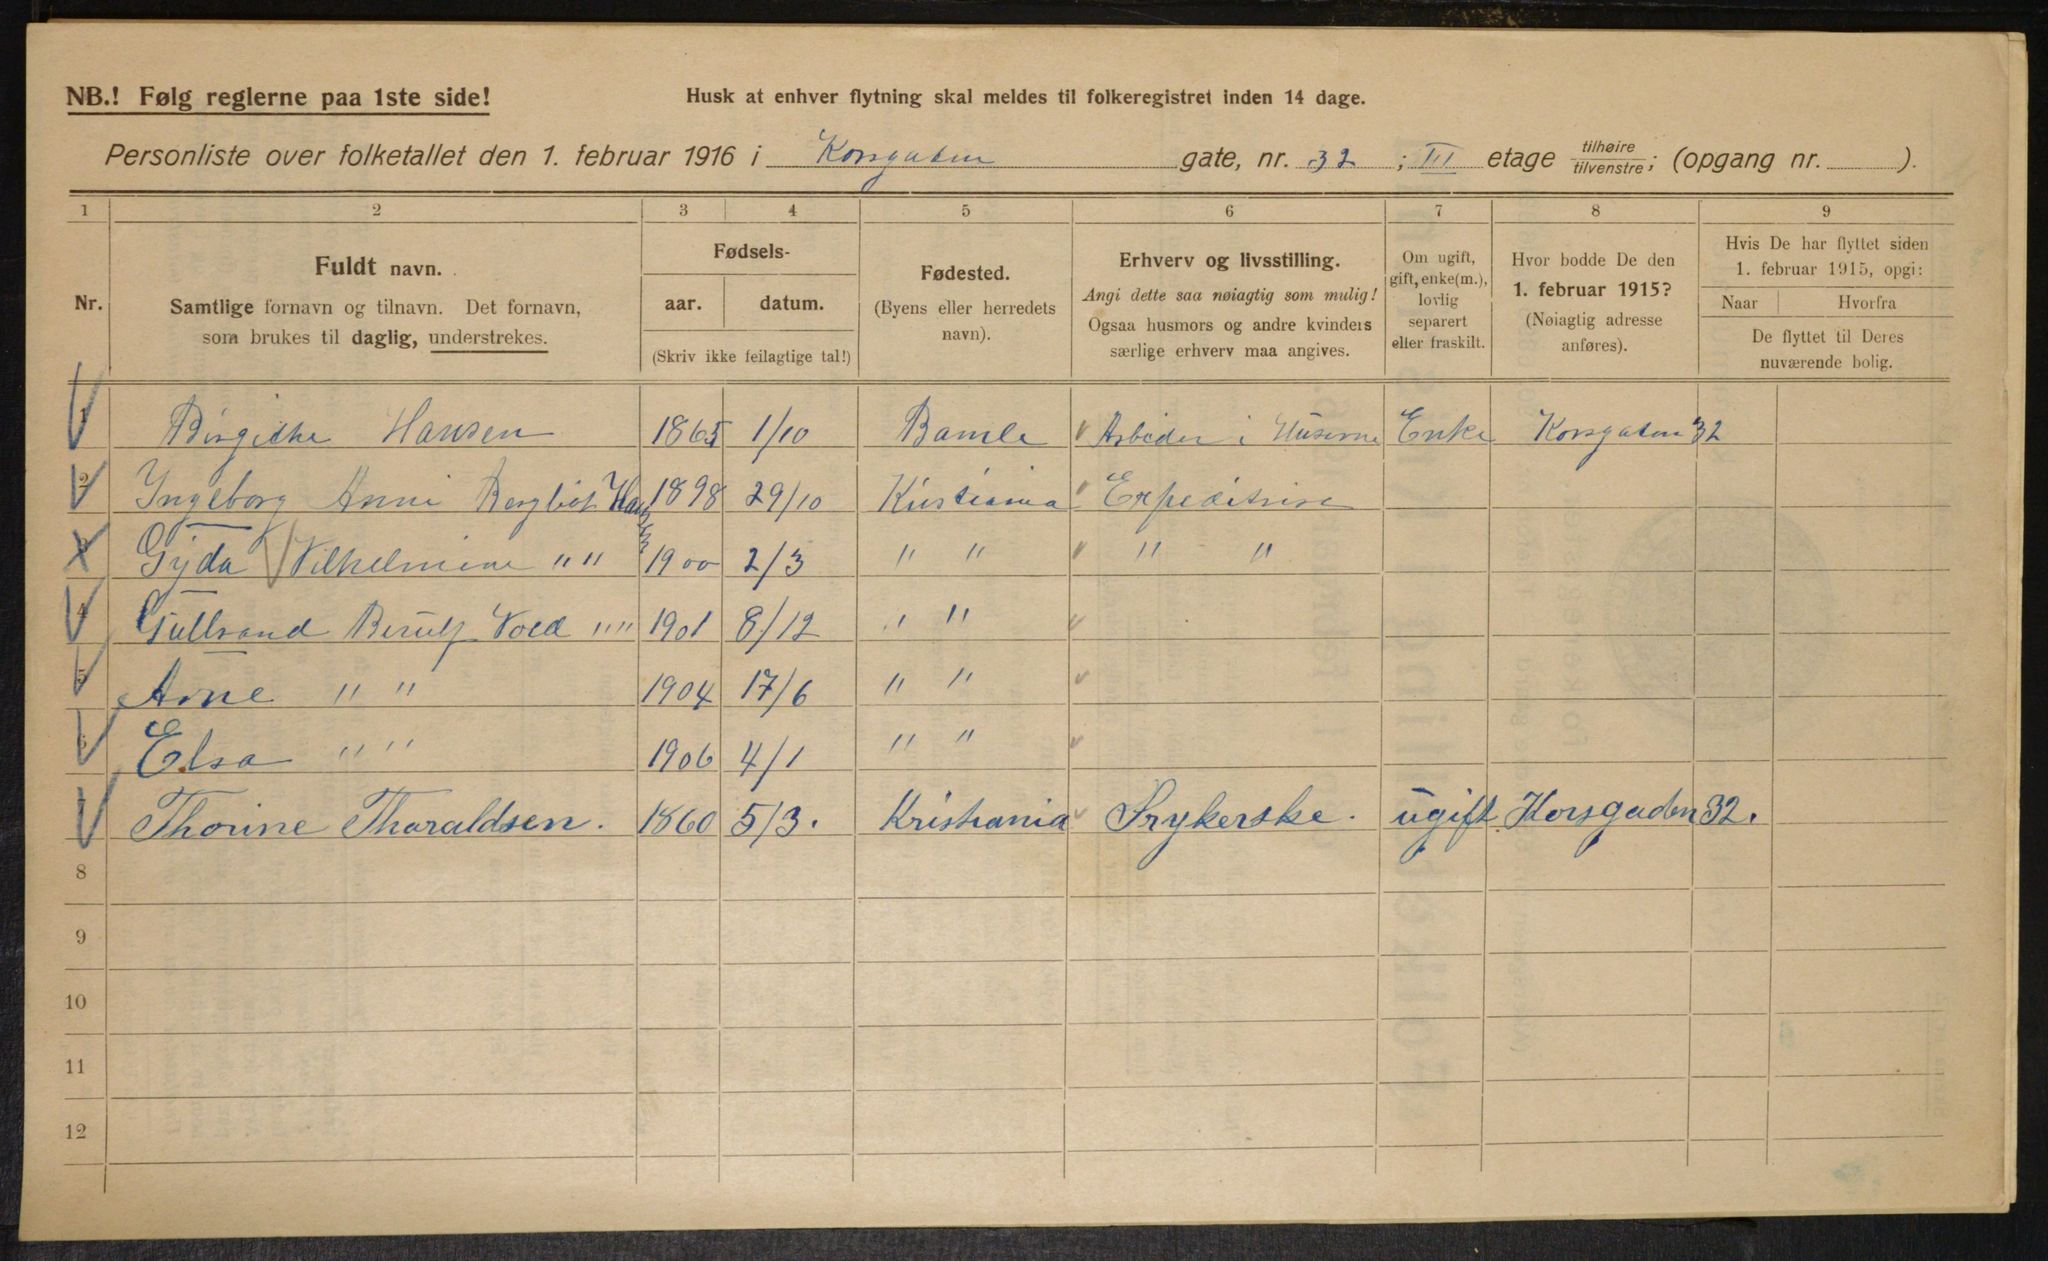 NB.! Følg reglerne paa 1ste side!
Husk at enhver flytning skal meldes til folkeregistret inden 14 dage.
Personliste over folketallet den 1. februar 1916 i Korsgaten gate, nr. 32 ; III etage tilhøire / tilvenstre ; (opgang nr. ).
1 2 3 4 5 6 7 8 9
Nr.
Fuldt navn.
Samtlige fornavn og tilnavn. Det fornavn,
som brukes til daglig, understrekes.
Fødsels-
aar. datum.
(Skriv ikke feilagtige tal!)
Fødested.
(Byens eller herredets
navn).
Erhverv og livsstilling.
Angi dette saa nøiagtig som mulig!
Ogsaa husmors og andre kvinders
særlige erhverv maa angives.
Om ugift,
gift, enke(m.),
lovlig
separert
eller fraskilt.
Hvor bodde De den
1. februar 1915?
(Nøiagtig adresse
anføres).
Hvis De har flyttet siden
1. februar 1915, opgi:
Naar Hvorfra
De flyttet til Deres
nuværende bolig.
1 Birgithe Hansen 1865 1/10 Bamle Arbeder i Huserne Enke Korsgaten 32
2 Ingeborg Anni Bergliot Hansen 1898 29/10 Kristiania Expeditrise
3 Gyda Vilhelmine " " 1900 2/3 " " " "
4 Gullrand 8/12 Vold " " 1901 " "
5 Arne " " 1904 17/6 " "
6 Elsa " " 1906 4/1 " "
7 Thorine Tharaldsen. 1860 5/3. Kristiania Srykerske. ugift Korsgaden 32.
8
9
10
11
12